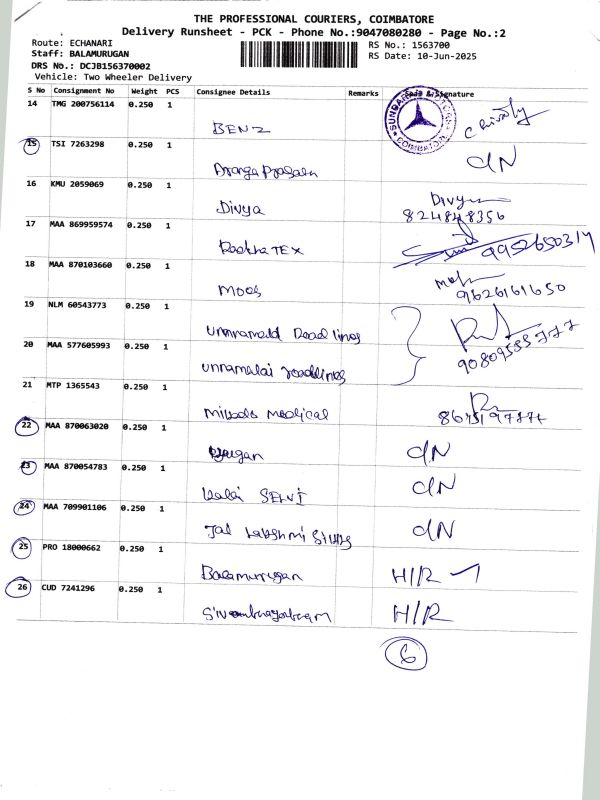 THE PROFESSIONAL COURIERS, COIMBATORE
Delivery Runsheet - PCK - Phone No.:9047080280 - Page No.:2
Route: ECHANARI
RS No.: 1563700
Staff: BALAMURUGAN
RS Date: 10-Jun-2025
DRS No.: DCJB156370002
Vehicle: Two Wheeler Delivery
S No Consignment No Weight PCS Consignee Details Remarks Signature
14 TMG 200756114 0.250 1
BENZ
SUNDARAM COIMBATORE
15 TSI 7263298 0.250 1
DN
16 KMU 2059069 0.250 1
Divya Divya
824848356
17 MAA 869959574 0.250 1
TEX 9952650314
18 MAA 870103660 0.250 1
Moos
9626161650
19 NLM 60543773 0.250 1
20 MAA 577605993 0.250 1
unnamalai roadlines
21 MTP 1365543 0.250 1
Medical
22 MAA 870063020 0.250 1
DN
23 MAA 870054783 0.250 1
Kalai SELVI DN
24 MAA 709901106 0.250 1
Jai Lakshmi DN
25 PRO 18000662 0.250 1
Balamurugan H/R
26 CUD 7241296 0.250 1
H/R
6